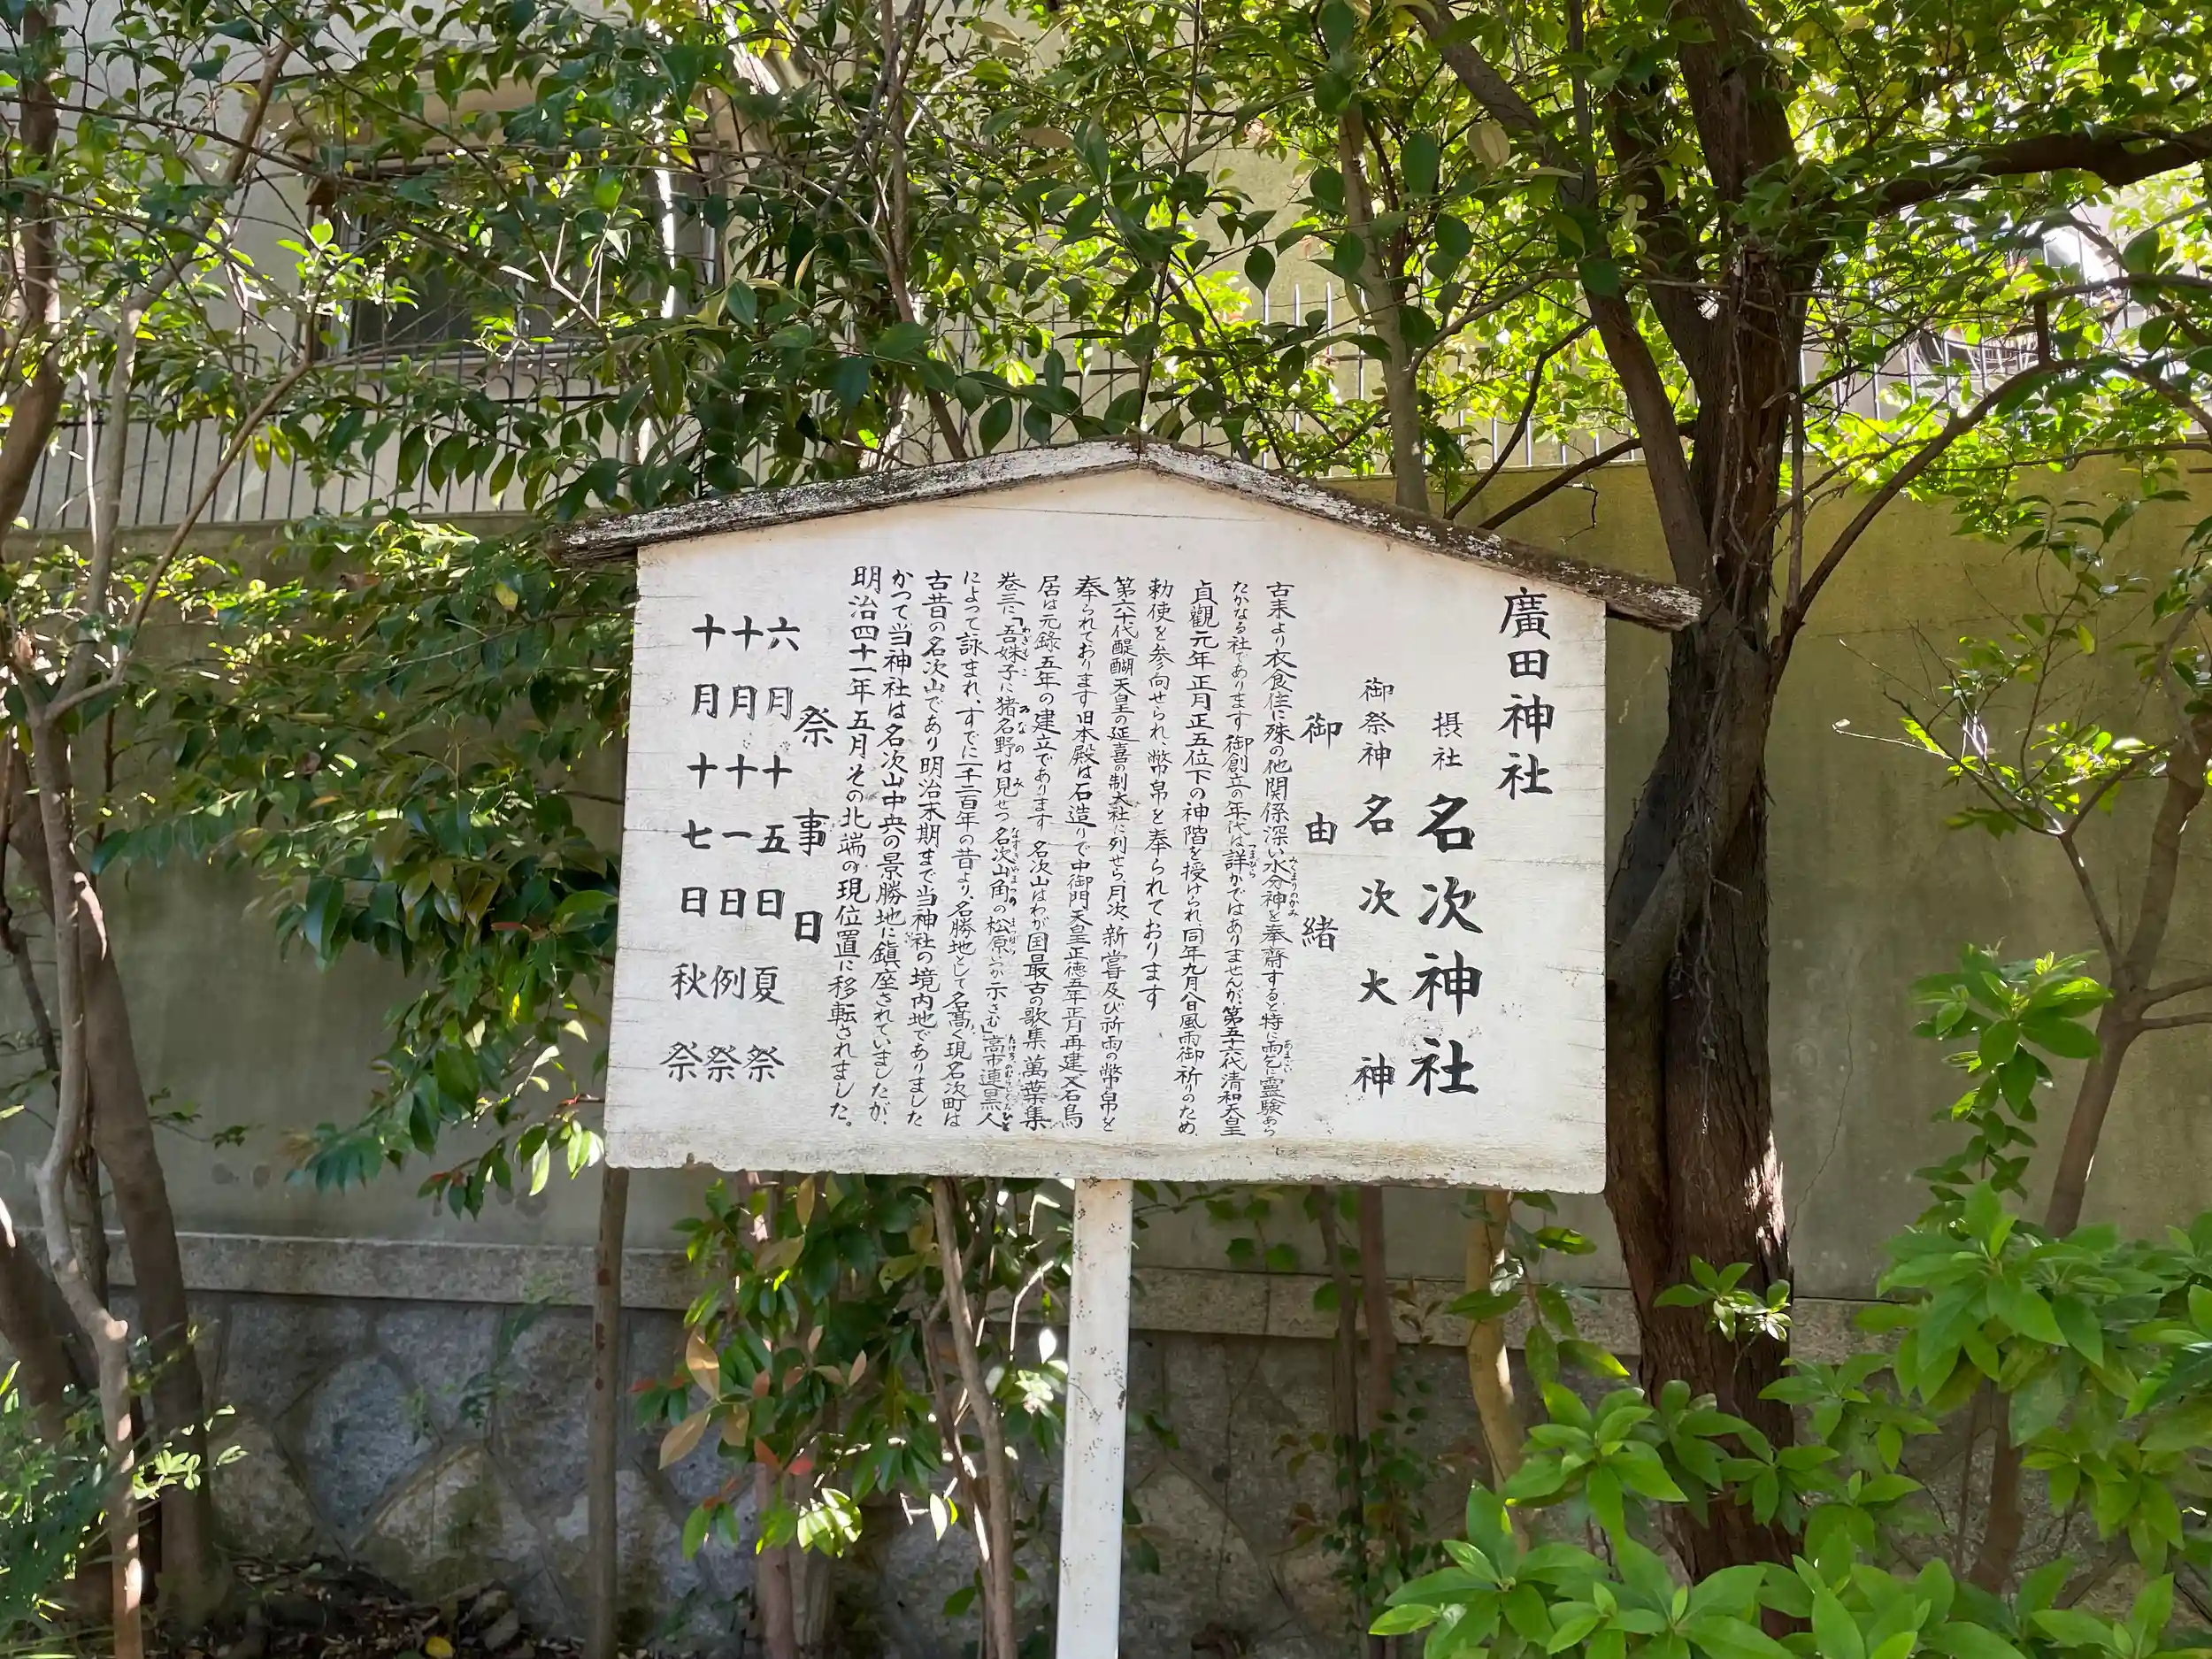 廣田神社
摂社 名次神社
御祭神 名次大神
御由緒
古来より衣食住に殊の他関係深い水分神を奉斎すると特に雨乞に霊験あら
たかなる社であります 御創立の年代は詳かではありませんが、第五十六代清和天皇
貞觀元年正月正五位下の神階を授けられ、同年九月八日風雨御祈りのため、
勅使を参向せられ、幣帛を奉られております
第六十代醍醐天皇の延喜の制大社に列せら、月次、新嘗及び祈雨の幣帛を
奉られております 旧本殿は石造りで中御門天皇正徳五年正月再建又石鳥
居は元録五年の建立であります 名次山はわが国最古の歌集 萬葉集
巻三に「吾妹子に猪名野は見せつ名次山角の松原いつか示さむ」高市連黒人
によって詠まれ、すでに一千二百年の昔より、名勝地として名髙く現名次町は
古昔の名次山であり明治末期まで当神社の境内地でありました
かつて当神社は名次山中央の景勝地に鎮座されていましたが、
明治四十一年五月その北端の現位置に移転されました。
祭事日
六月十五日 夏祭
十月十一日 例祭
十月十七日 秋祭